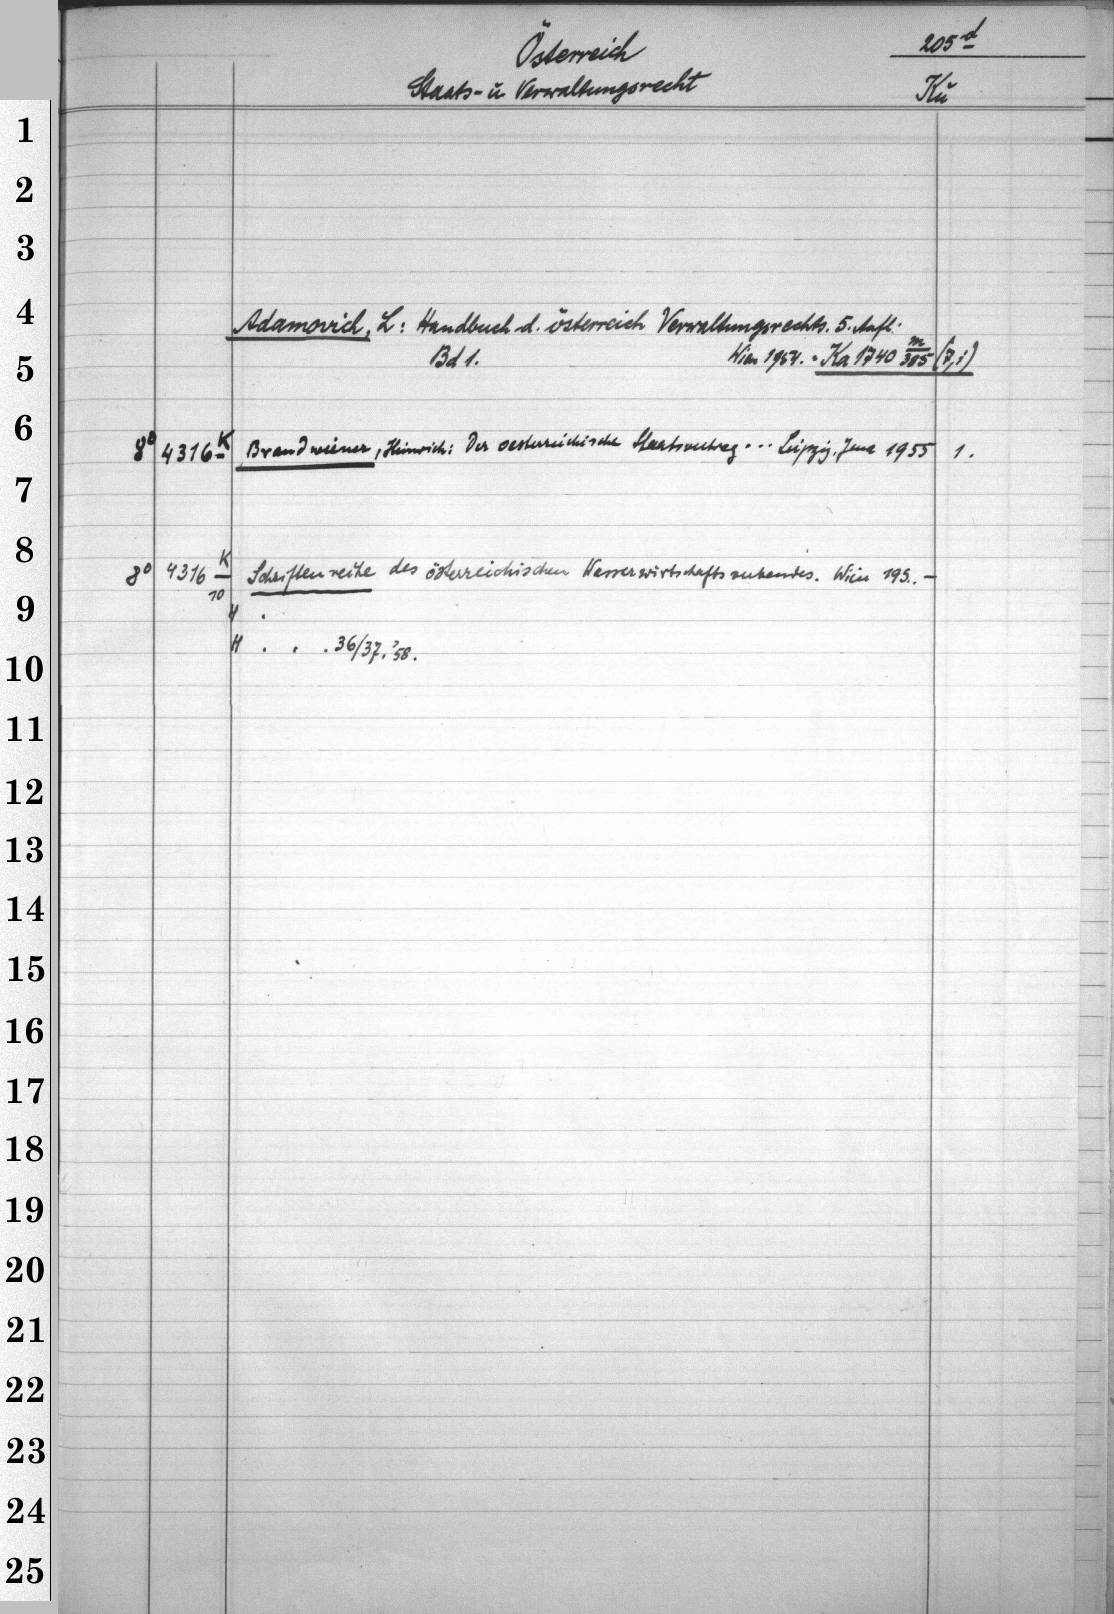 Österreich
205 d
Staats- u Verwaltungsrecht
Kü
1
2
3
4
Adamovich, L: Handbuch d. österreich Verwaltungsrechts. 5. Aufl.
5
Bd 1. Wien 1954. Ka 1740 m/385 (7,i)
6
8° 4316 K Brandweiner, Heinrich: Der oesterreichische Staatsvertrag... Leipzig, Jena 1955 1.
7
8
8° 4316 K/10 Schriftenreihe des österreichischen Wasserwirtschaftsverbandes. Wien 195.. –
9
H .
H . . . 36/37. '58.
10
11
12
13
14
15
16
17
18
19
20
21
22
23
24
25